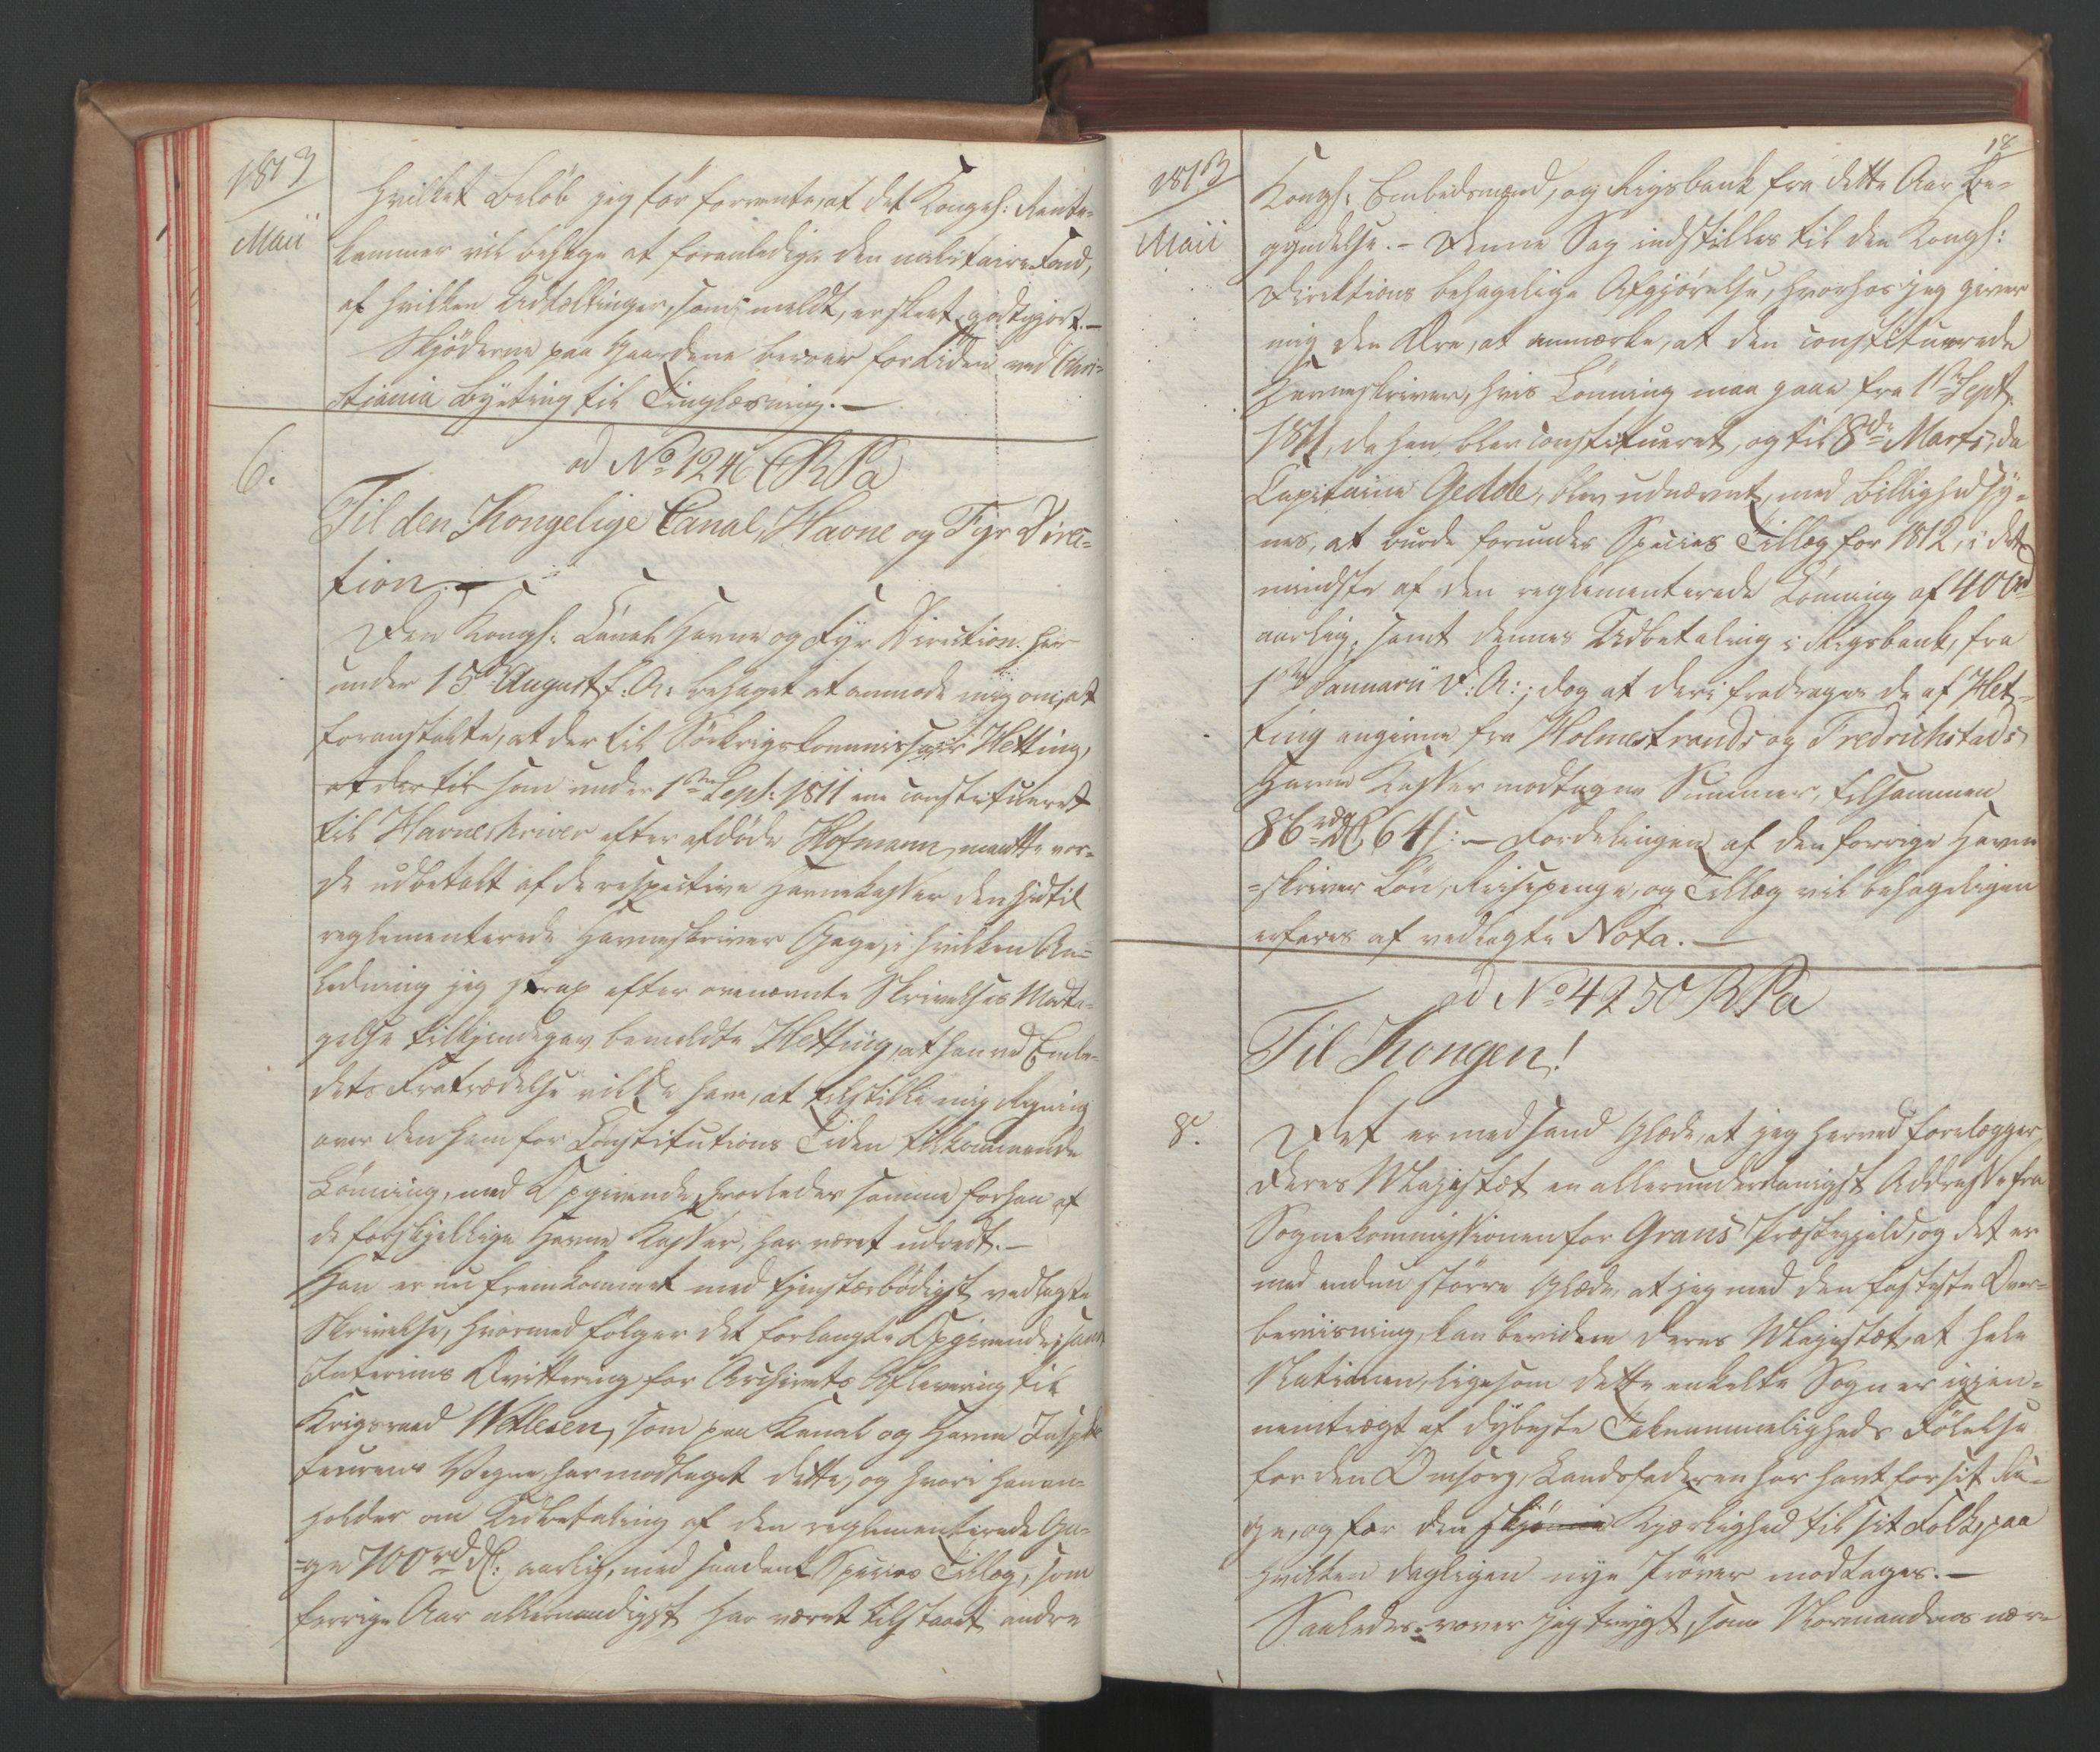 1813
Maii
Hvilket Beløb jeg tør forvente, at det Kongel: Rente-
kammer vil behage at foranledige den militaire Fond,
af hvilken Udtællinger, som meldt, er skeet, godtgjort. —
Skjøderne paa Gaardene beroer for Tiden ved Chri-
stiania Byeting til Tinglæsning. —
6.
ad No 1246 RPa
Til den Kongelige Canal, Havne og Fyr Direc-
tion. —
Den Kongl: Canal Havne og Fyr Direction har
under 15de August f: A: behaget at anmode mig om, at
foranstalte, at der til Söekrigskommissair Hetting,
at der til som under 1ste Sept: 1811 er constitueret
til Havneskriver efter afdøde Hofmann, maatte vor-
de udbetalt af de respective Havnekasser den hidtil
reglementerede Havneskriver Gage, i hvilken An-
ledning jeg strax efter ovennævnte Skrivelses Modta-
gelse tilkjendegav bemeldte Hetting, at han ved Embe-
dets Fratrædelse vilde have, at tilstille mig Regning
over den ham for Constitutions Tiden tilkommende
Lönning, med Opgivende, hvorledes samme for ham af
de forskjellige Havne Kasser, har været udredt. —
Han er nu fremkommet med tjenstærbødigst vedlagte
Skrivelse, hvormed følger det forlangte Opgivende, samt
Interims Qvittering for Archivets Aflevering til
Krigsraad Wetlesen, som paa Kanal og Havne Inspek-
teurens Vegne, har modtaget dette, og hvori han an-
holder om Udbetaling af den reglementerede Ga-
=ge 700 rd dl: aarlig, med saadant Species Tillæg, som
forrige Aar allernaadigst har været tilstaaet andre
18
1813
Maii
Kongl: Embedsmænd, og Rigsbank fra dette Aar Be-
gyndelse. — Denne Sag indstilles til den Kongl:
Direktions behagelige Afgjörelse, hvorhos jeg giver
mig den Ære, at anmærke, at den constituerede
Havneskriver, hvis Lönning maa gaae fra 1ste Sept:
1811, da han blev constitueret, og til 8de Marts, da
Capitaine Gedde, blev udnævnt, med Billighed sy-
nes, at burde forundes Species Tillæg for 1812, i det
mindste af den reglementerede Lönning af 400 rd
aarlig, samt dennes Udbetaling i Rigsbank, fra
1ste Januarii d: A:; dog at deri fradrages de af Het-
ting angivne fra Holmestrands og Fredrichstads
Havne Kasser modtagne Summer, tilsammen
86 rd 64 s: — Fordelingen af den forrige Havne
=skriver Lön, Reisepenge, og Tillæg vil behageligen
erfares af vedlagte Nota. —
ad No 4250 RPa
Til Kongen!
8.
Det er med sand Glæde, at jeg herved forelægger
Deres Majestæt en allerunderdanigst Addresse fra
Sognekommissionen for Grans Præstegjeld, og det er
med endnu større Glæde, at jeg med den fasteste Over-
beviisning, kan bevidne Deres Majestæt, at hele
Nationen, ligesom dette enkelte Sogn er igjen-
nemtrægt af dybeste Taknemmeligheds Følelse
for den Omsorg, Landsfaderen har havt for sit Ri-
ge, og for den skjönne Kjærlighed til sit Folk, paa
hvilken dagligen nye Prøver modtages. —
Saaledes vover jeg trygt, som Normandens nær-